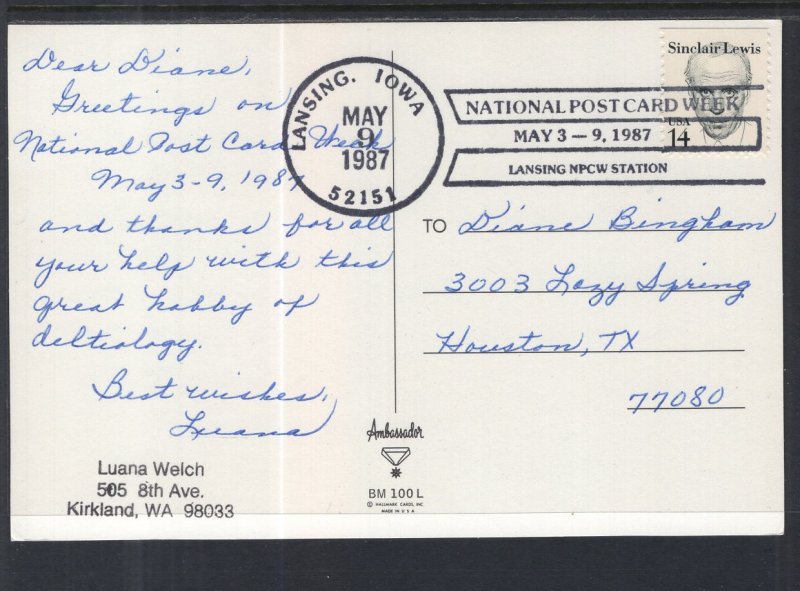 Dear Diane,
Greetings on
National Post Card Week
May 3-9, 1987
and thanks for all
your help with this
great hobby of
deltiology.
Best wishes,
Luana
Luana Welch
505 8th Ave.
Kirkland, WA 98033
LANSING, IOWA
MAY
9
1987
52151
Sinclair Lewis
USA
14
NATIONAL POST CARD WEEK
MAY 3 — 9, 1987
LANSING NPCW STATION
TO Diane Bingham
3003 Lazy Spring
Houston, TX
77080
Ambassador
BM 100 L
© HALLMARK CARDS, INC.
MADE IN U S A